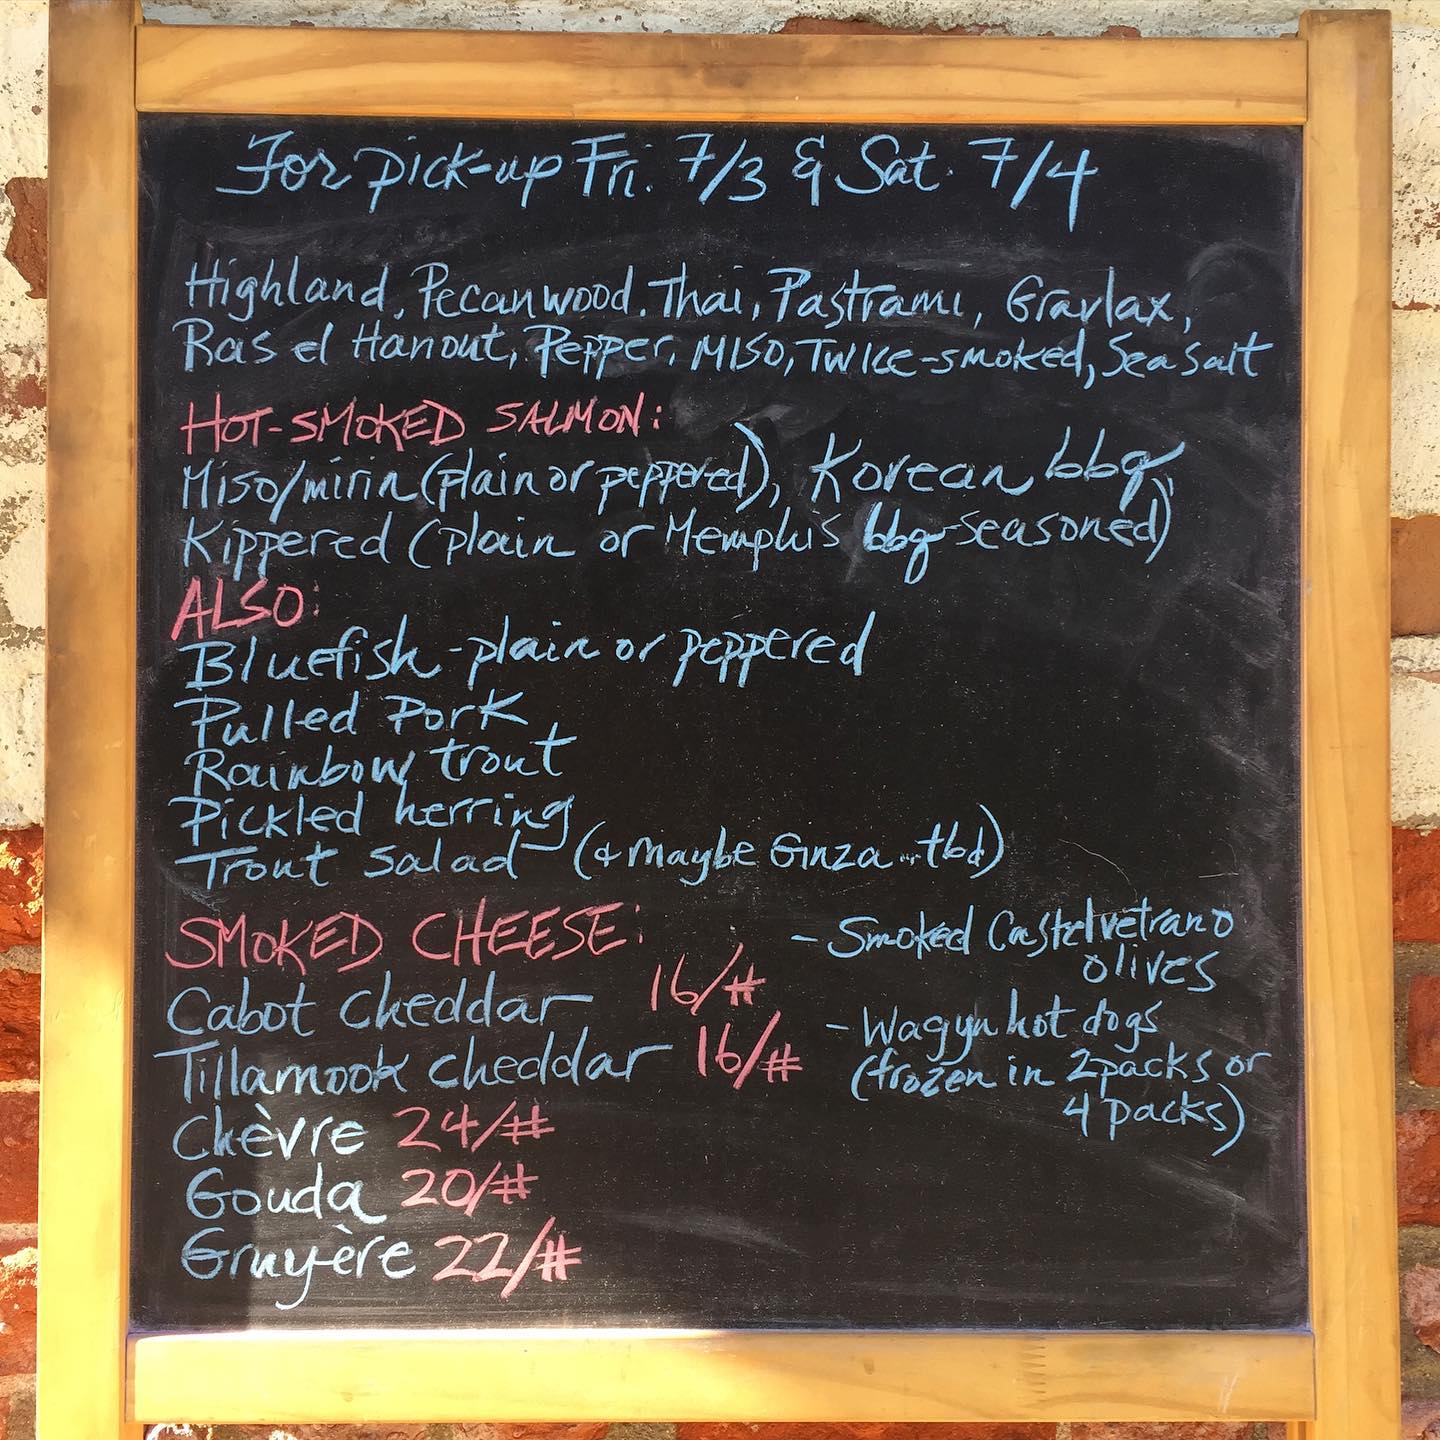 For pick-up Fri. 7/3 & Sat. 7/4
Highland, Pecanwood, Thai, Pastrami, Gravlax,
Ras el Hanout, Pepper, Miso, Twice-smoked, Sea Salt
HOT-SMOKED SALMON:
Miso/mirin (plain or peppered), Korean bbq
Kippered (plain or Memphis bbq-seasoned)
ALSO:
Bluefish - plain or peppered
Pulled Pork
Rainbow trout
Pickled herring
Trout salad (& maybe Ginza...tbd)
SMOKED CHEESE:
Cabot cheddar 16/#
Tillamook cheddar 16/#
Chèvre 24/#
Gouda 20/#
Gruyère 22/#
- Smoked Castelvetrano
olives
- Wagyu hot dogs
(frozen in 2packs or
4 packs)